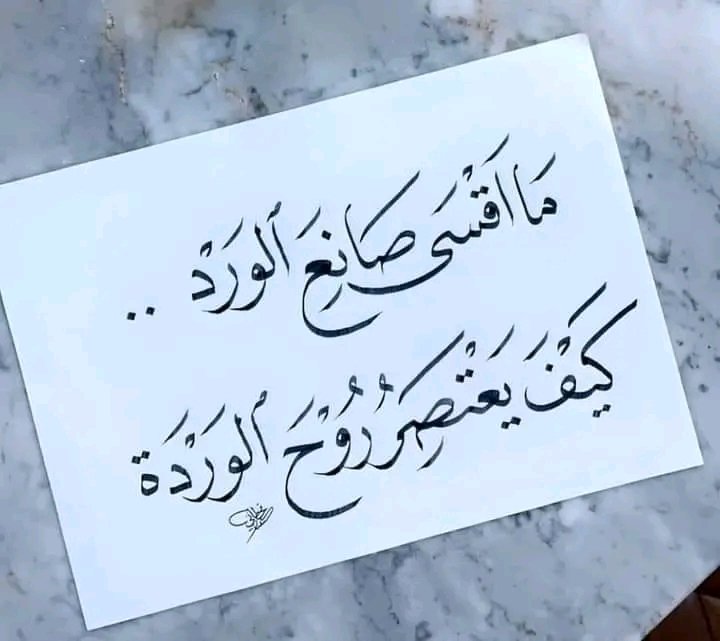 مَا اقْسَى صَانِعَ ٱلوَرَدْ ..
كَيْفَ يَعْتَصِرُ رُوْحَ ٱلوَرْدَة